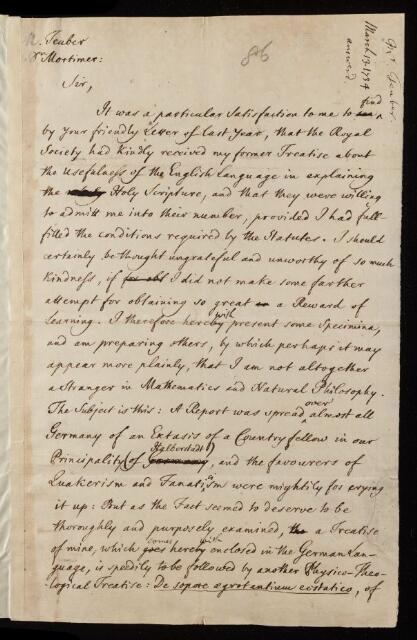 Teuber
Dr Mortimer:
86
Mr. Teuber.
March 13. 1734
answered.
Sir,
It was a particular Satisfaction to me to find
by your friendly Letter of last Year, that the Royal
Society had kindly received my former Treatise about
the Usefulness of the English Language in explaining
the Holy Scripture, and that they were willing
to admitt me into their number, provided I had full-
filled the conditions required by the Statutes. I should
certainly be thought ungrateful and unworthy of so much
Kindness, if I did not make some farther
attempt for obtaining so great a Reward of
Learning. I therefore herewith present some Specimina,
and am preparing others, by which perhaps it may
appear more plainly, that I am not altogether
a Stranger in Mathematics and Natural Philosophy.
The Subject is this: A Report was spread over almost all
Germany of an Extasis of a Country fellow in our
Principality (of Halberstadt), and the favourers of
Quakerism and Fanaticism were mightily for crying
it up: But as the Fact seemed to deserve to be
thoroughly and purposely examined, a Treatise
of mine, which comes herewith enclosed in the German Lan-
guage, is speedily to be followed by another Physico-Theo-
logical Treatise: De sopore ægrotantium ecstatico, of